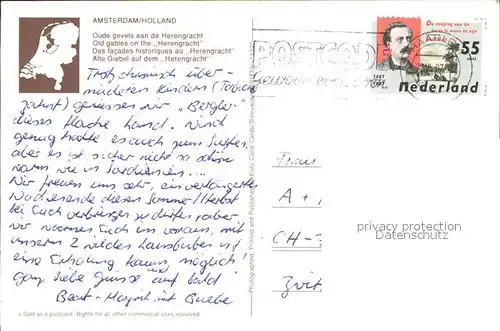 AMSTERDAM/HOLLAND
Oude gevels aan de Herengracht
Old gables on the „Herengracht"
Des façades historiques au „Herengracht"
Alte Giebel auf dem „Herengracht"
Trotz chronisch über-
müdeten Kindern
geniessen wir „Bergler"
dieses flache Land. Wind
genug hätte es auch zum Surfen,
aber es ist sicher nicht so schön
warm wie in Sardinien....
Wir freuen uns sehr, ein verlängertes
Wochenende diesen Sommer/Herbst
bei Euch verbringen zu dürfen, aber
wir warnen Euch im voraus, mit
unseren 2 wilden Lausbuben ist
eine Erholung kaum möglich!
Ganz liebe Grüsse und auf bald
Beat + Margrit mit Buebe
POSTCODE
De roeping van de
mens is mens te zijn
55
cent
Nederland
Frau
A + A
CH-3
Zwit
privacy protection
Datenschutz
Sold as a postcard. Rights for all other commercial uses reserved.